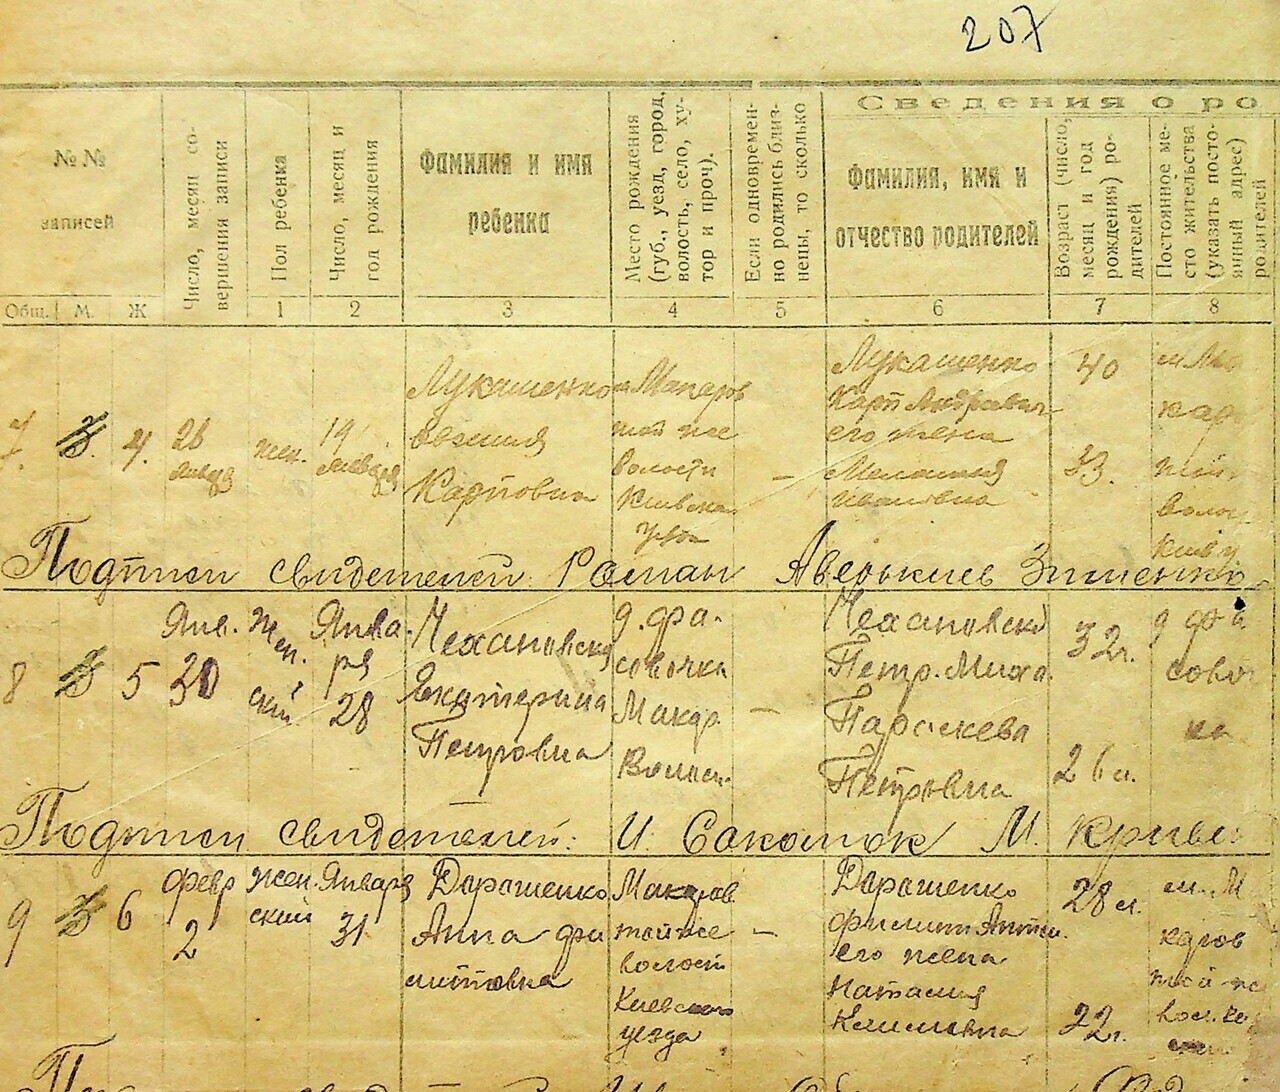 207
Сведения о ро
№ №
записей
Число, месяц со-
вершения записи
Пол ребенка
Число, месяц и
год рождения
Фамилия и имя
ребенка
Место рождения
(губ., уезд, город,
волость, село, ху-
тор и проч).
Если одновремен-
но родились близ-
нецы, то сколько
Фамилия, имя и
отчество родителей
Возраст (число,
месяц и год
рождения) ро-
дителей
Постоянное ме-
сто жительства
(указать посто-
янный адрес)
родителей
Общ. М. Ж 1 2 3 4 5 6 7 8
7. 4.
26
января
жен.
19
января
Лукашенко
Карповна
м Макаров
той же
волости
Киевска
уезда
—
Лукашенко
Карп Андреевич
его жена
Мелания
Ивановна
40
33.
м Ма
каро
той
волос
Киев у
Подписи свидетелей: Роман Аверькиев Зименко
8 5
Янв.
30
Жен.
ский
Янва.
ря
28
Чехановска
Екатерина
Петровна
д. Фа.
совочка
Макар.
Волос.
—
Чехановски
Петр. Миха.
Параскева
Петровна
32 г.
26 л.
д Фа
совоч
ка
Подписи свидетелей: И. Саколюк М.
9 6
февр
2
жен.
ский
Января
31
Дорошенко
Анна Фи
липповна
Макаров
той же
волости
Киевского
уезда
—
Дорошенко
Филипп
его жена
Наталия
Климовна
28 л.
22 г.
м. М
каров
той же
вол.